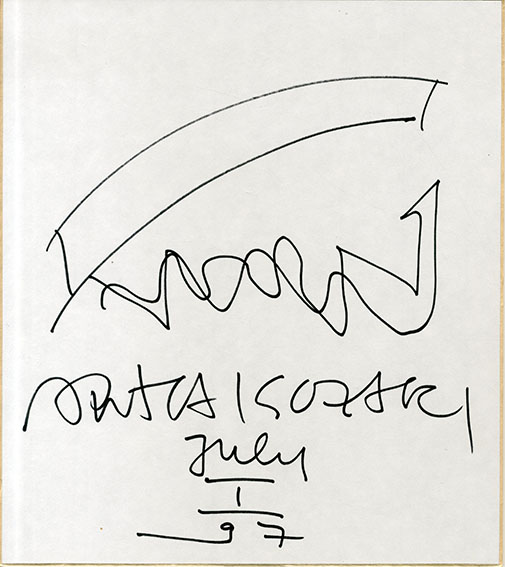 ARATA ISOZAKI
July
1
97